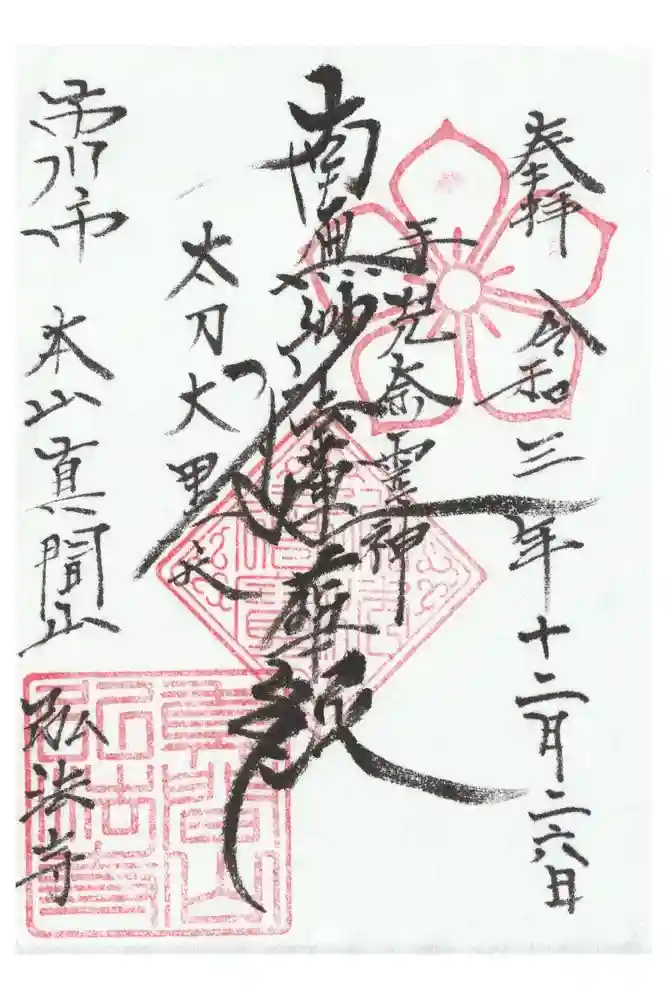 奉拝 令和三年十二月二六日
手児奈霊神
南無妙法蓮華経
太刀大黒天
市川市 本山真間山
弘法寺